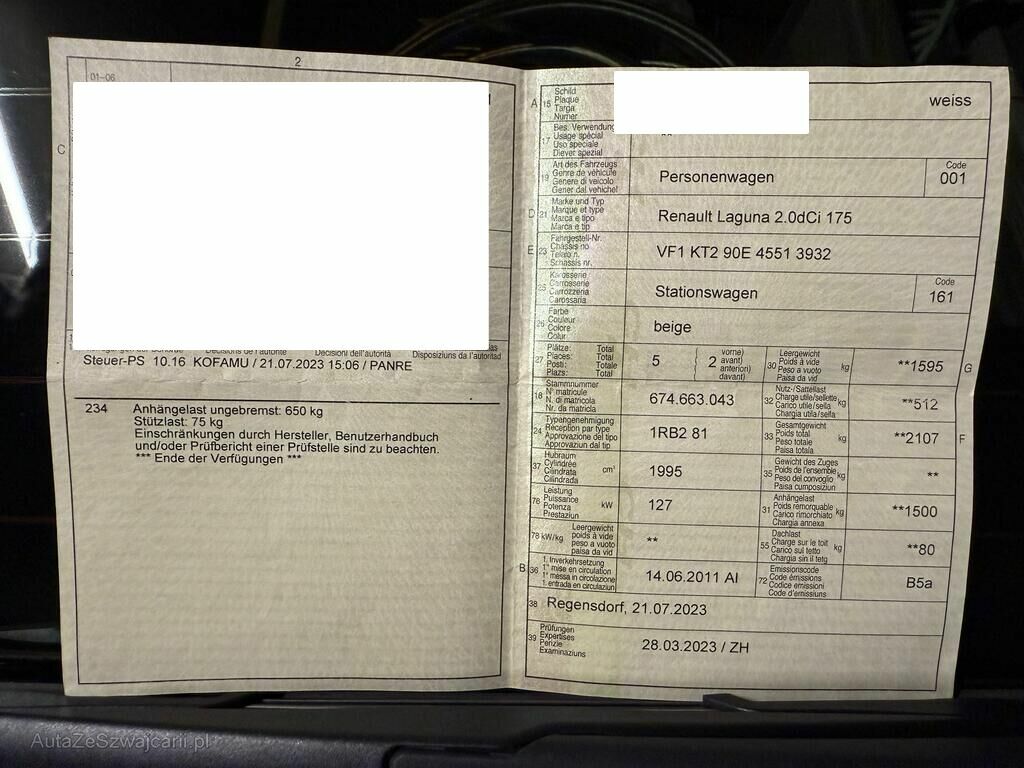 2
01-06
C
Décisions de l'autorité Decisioni dell'autorità Disposiziuns da l'autoritad
Steuer-PS 10.16 KOFAMU / 21.07.2023 15:06 / PANRE
234 Anhängelast ungebremst: 650 kg
Stützlast: 75 kg
Einschränkungen durch Hersteller, Benutzerhandbuch
und/oder Prüfbericht einer Prüfstelle sind zu beachten.
*** Ende der Verfügungen ***
A 15 Schild
Plaque
Targa
Numer
weiss
17 Bes. Verwendung
Usage spécial
Uso speciale
Diever spezial
**
19 Art des Fahrzeugs
Genre de véhicule
Genere di veicolo
Gener dal vehichel
Personenwagen
Code
001
D 21 Marke und Typ
Marque et type
Marca e tipo
Marca e tip
Renault Laguna 2.0dCi 175
E 23 Fahrgestell-Nr.
Châssis no
Telaio n.
Schassis nr.
VF1 KT2 90E 4551 3932
25 Karosserie
Carrosserie
Carrozzeria
Carossaria
Stationswagen
Code
161
26 Farbe
Couleur
Colore
Colur
beige
27 Plätze: Total
Places: Total
Posti: Totale
Plazs: Total
5 ( 2 vorne)
avant)
anteriori)
davant)
30 Leergewicht
Poids à vide
Peso a vuoto
Paisa da vid
kg
**1595
G
18 Stammnummer
N° matricule
N. di matricola
Nr. da matricla
674.663.043
32 Nutz-/Sattellast
Charge utile/sellette
Carico utile/sella
Chargia utila/sella
kg
**512
24 Typengenehmigung
Réception par type
Approvazione del tipo
Approvaziun dal tip
1RB2 81
33 Gesamtgewicht
Poids total
Peso totale
Paisa totala
kg
**2107
F
37 Hubraum
Cylindrée
Cilindrata
Cilindrada
cm³
1995
35 Gewicht des Zuges
Poids de l'ensemble
Peso del convoglio
Paisa cumposiziun
kg
**
76 Leistung
Puissance
Potenza
Prestaziun
kW
127
31 Anhängelast
Poids remorquable
Carico rimorchiato
Chargia annexa
kg
**1500
78 kW/kg Leergewicht
poids à vide
peso a vuoto
paisa da vid
**
55 Dachlast
Charge sur le toit
Carico sul tetto
Chargia sin il tetg
kg
**80
B 36 1. Inverkehrsetzung
1re mise en circulation
1a messa in circolazione
1. entrada en circulaziun
14.06.2011 AI
72 Emissionscode
Code émissions
Codice emissioni
Code d'emissiuns
B5a
38 Regensdorf, 21.07.2023
39 Prüfungen
Expertises
Perizie
Examinaziuns
28.03.2023 / ZH
AutaZeSzwajcarii.pl